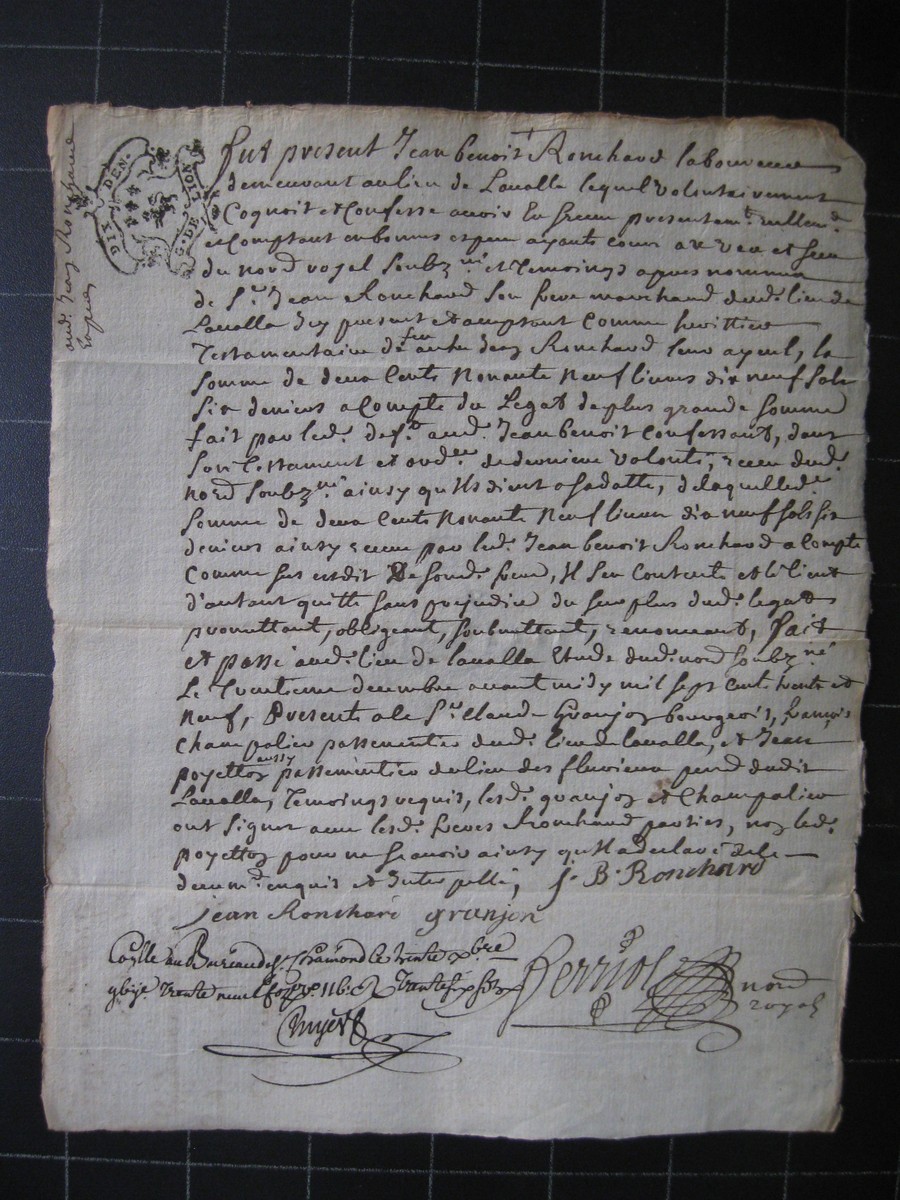 aud. Jean Ronchard
DIX DEN.
G. DE LION
fut present Jean benoit Ronchard laboureur
demeurant au lieu de Lavalla lequel volontairement
Cognoit et Confesse avoir En Receu presentemt. reellemt.
et Comptant en bonnes especes ayants cours au veu et sceu
du nore royal soubzné et temoings apres nommes
de Sr. Jean Ronchard son frere marchand dud. lieu de
Lavalla Icy present et acceptant Comme heritier
Testamentaire de feu autre Jean Ronchard leur ayeul, la
somme de deux Cents Nonante Neuf livres dix neuf sols
six deniers a Compte du Legat de plus grande somme
fait par led. deft. aud. Jean benoit Confessant, dans
son testament et ordre. de derniere volonté, receu dud.
nore soubzné. ainsy qu'ils dient a sa datte, de laquelle de.
somme de deux Cents Nonante Neuf livres dix neuf sols six
deniers ainsy receue par led. Jean benoit Ronchard a Compte
Comme sus est dit de sond. frere, Il s'en Contente et le tient
d'autant quitte sans prejudice du surplus dud. legat
promettant, obligeant, soubmettant, renonceant, fait
et passé aud. lieu de lavalla Etude dud. nore soubzné
Le trentieme decembre avant midy mil sept cents trente et
Neuf, Presents a ce Sr. Claude Granjon bourgeois, françois
Champalier passementier dud. lieu de lavalla, et Jean
poyetton aussy passementier du lieu des fluvieux parr. dudit
Lavalla, Temoings requis, lesd. granjon et Champalier
ont signer avec lesd. freres Ronchard parties, non led.
poyetton pour ne scavoir ainsy qu'il a declaré de ce
deuemt. enquis et interpellé,
J. B. Ronchard
jean Ronchard granjon
Conlle au Bureau de St. Chamond le trente Xbre
gbije. trente neuf fo. Rx.
Perriol nore
royal